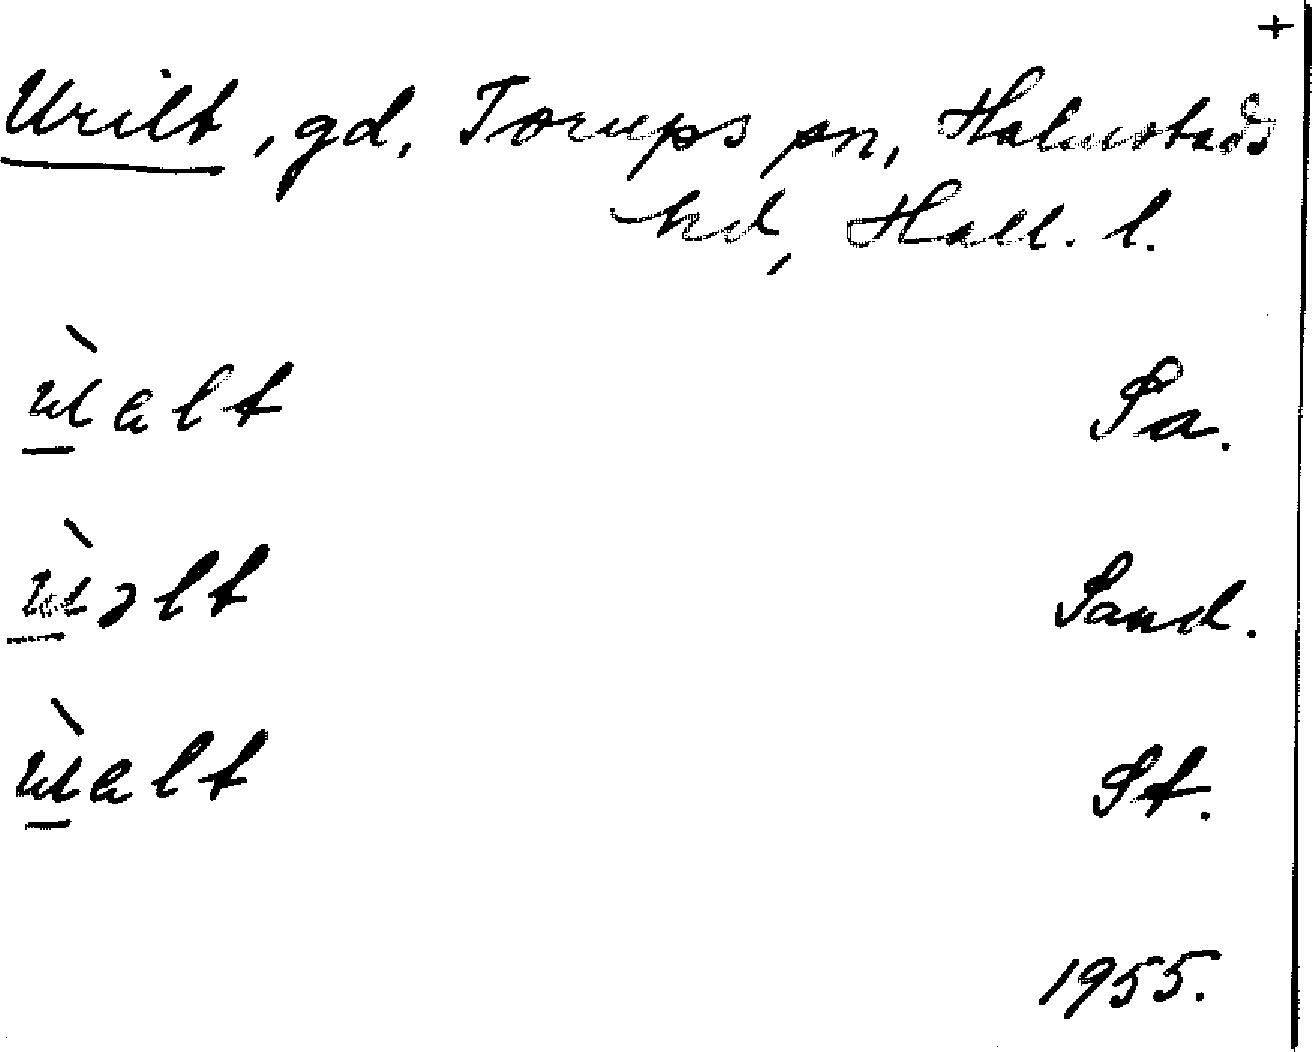 +
Urilt, gd, Torups sn, Halmstads
hd, Hall. l.
ɯ̀alt Sa.
ɯ̀əlt Sand.
ɯ̀alt St.
1955.